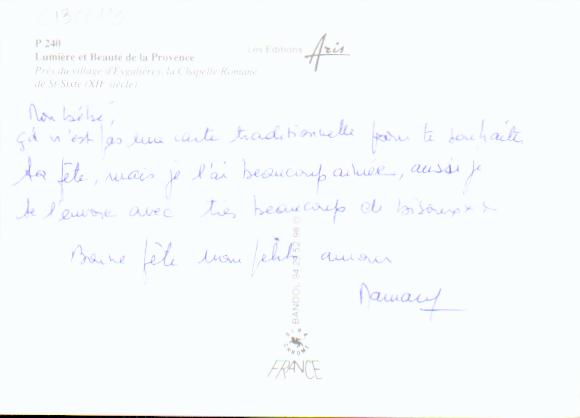 P 240
Lumière et Beauté de la Provence
Près du village d'Eygalières, la Chapelle Romane
de St-Sixte (XIIe siècle)
Les Editions Aris
Mon bébé,
ça n'est pas une carte traditionnelle pour te souhaiter
ta fête, mais je l'ai beaucoup aimée, aussi je
te l'envoie avec très beaucoup de bisous x x
Bonne fête mon petit amour
Maman
BANDOL 94 29 52 98
FRANCE